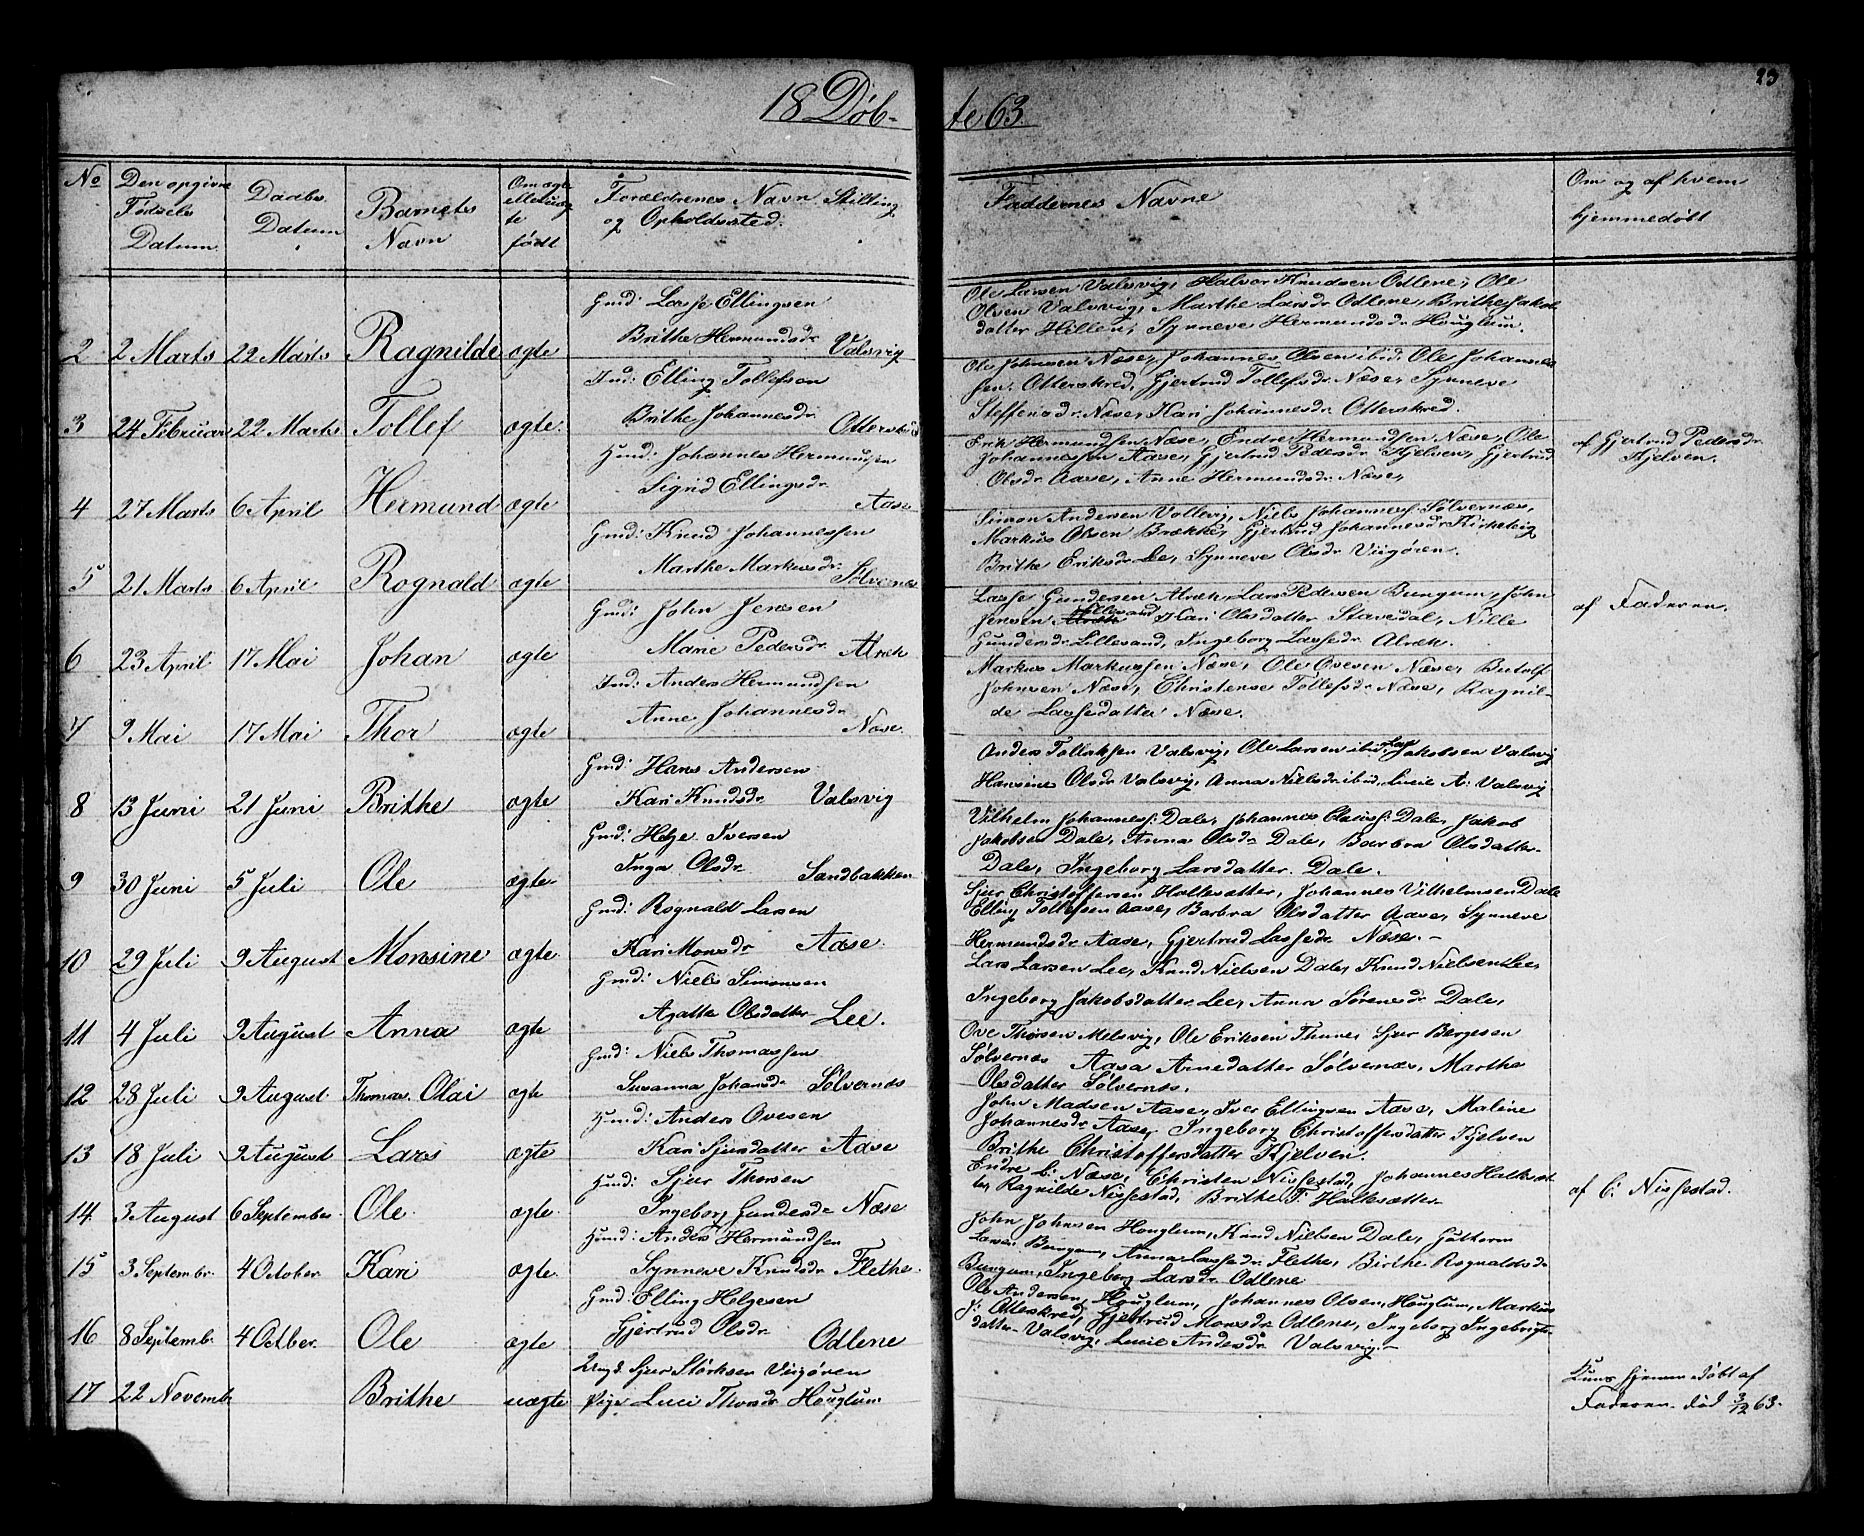 18 Døb-
te 63.
23
No
Den opgivne Fødsels Datum
Daabs Datum
Barnets Navn
Om ægte eller uægte født
Forældrenes Navn Stilling og Opholdssted.
Faddernes Navne
Om og af hvem hjemmedøbt
2 2 Marts 22 Marts Ragnilde ægte
Gmd: Lasse Ellingsen
Brithe Hermundsdr Valsvig
Ole Larsen Valsvig, Halvor Knudsen Odlene, Ole
Olsen Valsvig, Marthe Larsdr Odlene, Brithe Jakob
datter Hillen, Synneve Hermundsdr Houglum.
3 24 Februar 22 Marts Tollef ægte.
Ind: Elling Tollefsen
Brithe Johannesdr
Ole Johnsen Næse, Johannes Olsen ibid. Ole Johannes
sen Otterskred, Gjertrud Tollefsdr Næse, Synneve
Steffensdr Næse, Kari Johannesdr Otterskred.
4 27 Marts 6 April Hermund ægte
Huusmd: Johannes Hermundsen
Sigrid Ellingsdr Aase
Erik Hermundsen Næse, Endre Hermundsen Næse, Ole
Johannessen Aase, Gjertrud Pedersdr Kjelven, Gjertrud
Olsdr Aase, Anne Hermundsdr Næse,
af Gjertrud Pedersdr
Kjelven.
5 21 Marts 6 April Rognald ægte
Gmd: Knud Johannessen
Marthe Markusdr Sølvernæs
Simon Andersen Vollevig, Niels Johanness. Sølvernæs,
Markus Olsen Brække, Gjertrud Johannesdr
Brithe Eriksdr Lee, Synneve Olsdr Viigøren.
6 23 April 17 Mai Johan ægte
Gmd: John Jensen
Marie Pedersdr Alræk
Lasse Gundersen Alræk, Lars Pedersen Bungum, John
Jensen Lillesand Kari Olsdatter Stavedal, Nille
Gundersdr Lillesand, Ingeborg Lassedr Alræk.
af Faderen.
7 9 Mai 17 Mai Thor ægte
Ind: Anders Hermundsen
Anne Johannesdr Næse.
Markus Markussen Næse, Ole Ovesen Næse, Botolf
Johnsen Næse, Christense Tollefsdr Næse, Ragnil-
de Lassesdatter Næse.
8 13 Juni 21 Juni Brithe ægte
Gmd: Hans Andersen
Kari Knudsdr Valsvig
Anders Tollaksen Valsvig, Ole Larsen ibid, Lasse Jakobsen Valsvig
Hansine Olsdr Valsvig, Anna Nielsdr ibid, Lucie A: Valsvig
9 30 Juni 5 Juli Ole ægte
Gmd: Helje Iversen
Inga Olsdr Sandbakken
Vilhelm Johanness: Dale, Johannes Olaiss: Dale, Jakob
Jakobsen Dale, Anna Olsdr Dale, Barbra Olsdatter
Dale, Ingeborg Larsdatter Dale.
10 29 Juli 9 August Monsine ægte
Gmd: Rognald Larsen
Kari Monsdr Aase.
Sjur Christoffersen Halksætter, Johannes Vilhelmsen Dale
Elling Tollefsen Aase, Barbra Olsdatter Aase, Synneve
Hermundsdr Aase, Gjertrud Lassedr Næse.-
11 4 Juli 9 August Anna ægte
Gmd: Niels Simonsen
Agatte Olsdatter Lee.
Lars Larsen Lee, Knud Nielsen Dale, Knud Nielsen Lee,
Ingeborg Jakobsdatter Lee, Anna Sørensdr Dale,
12 28 Juli 9 August Thomas Olai ægte
Gmd: Niels Thomassen
Susanna Johansdr Sølvernæs
Ove Thorsen Melsvig, Ole Eriksen Thune, Sjur Børgesen
Sølvernæs Aasa Arnedatter Sølvernæs, Marthe
Olsdatter Sølvernæs.
13 18 Juli 9 August Lars ægte
Huusmd: Anders Ovesen
Kari Sjursdatter Aase
John Madsen Aase, Iver Ellingsen Aase, Maline
Johannesdr Aase, Ingeborg Christoffersdatter Kjelven
Brithe Christoffersdatter Kjelven.
14 3 August 6 September Ole ægte
Huusmd: Sjur Thorsen
Ingeborg Gundersdr Næse
Endre L: Næse, Christen Nissestad, Johannes Halksæt
ter, Ragnilde Nissestad, Brithe T: Halksætter
af C: Nissestad.
15 3 Septembr. 4 October Kari ægte
Huusmd: Anders Hermundsen
Synneve Knudsdr Flethe.
John Johnsen Houglum, Knud Nielsen Dale, Guttorm
Larsen Bungum, Anna Lassedr Flethe, Birthe Rognaldsdr
Bungum, Ingeborg Larsdr Odlene
16 8 Septemb. 4 Octber. Ole ægte
Gmd: Elling Helgesen
Gjertrud Olsdr Odlene
Ole Andersen, Houglum, Johannes Olsen, Houglum, Markus
J: Otterskred, Gjertrud Monsdr Odlene, Ingeborg Ingebrigts
datter Valsvig, Lucie Andersdr Valsvig.-
17 22 Novemb. Brithe uægte
Ungk. Sjur Størksen Viigøren
Pige Luci Thorsdr Houglum
Kuns hjemmedøbt af
Faderen. død 3/12 63.